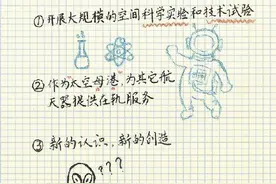 ① 开展大规模的空间科学实验和技术试验
② 作为太空母港,为其它航
天器提供在轨服务
③ 新的认识、新的创造
???